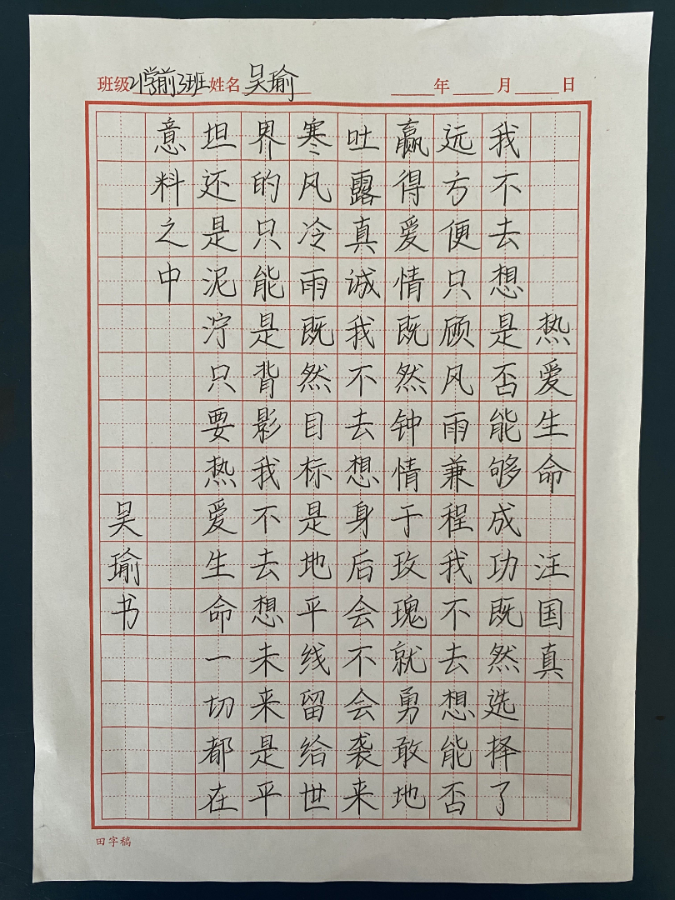 班级21学前3班姓名吴瑜 年 月 日
热爱生命 汪国真
我不去想是否能够成功既然选择了
远方便只顾风雨兼程我不去想能否
赢得爱情既然钟情于玫瑰就勇敢地
吐露真诚我不去想身后会不会袭来
寒风冷雨既然目标是地平线留给世
界的只能是背影我不去想未来是平
坦还是泥泞只要热爱生命一切都在
意料之中
吴瑜书
田字稿